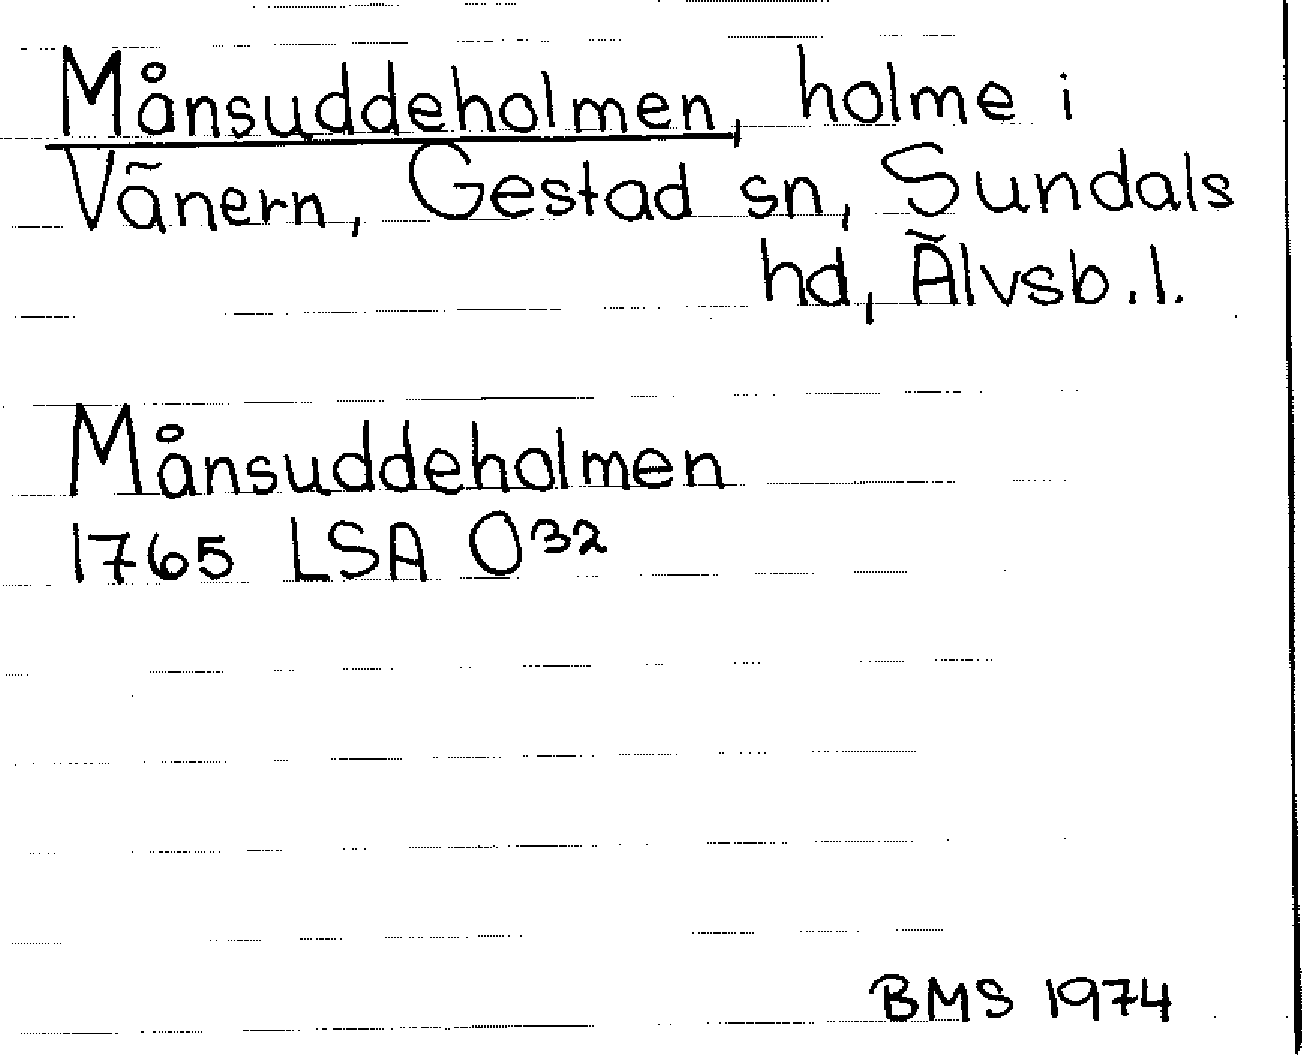 Månsuddeholmen, holme i
Vänern, Gestad sn, Sundals
hd, Älvsb.l.
Månsuddeholmen
1765 LSA O32
BMS 1974